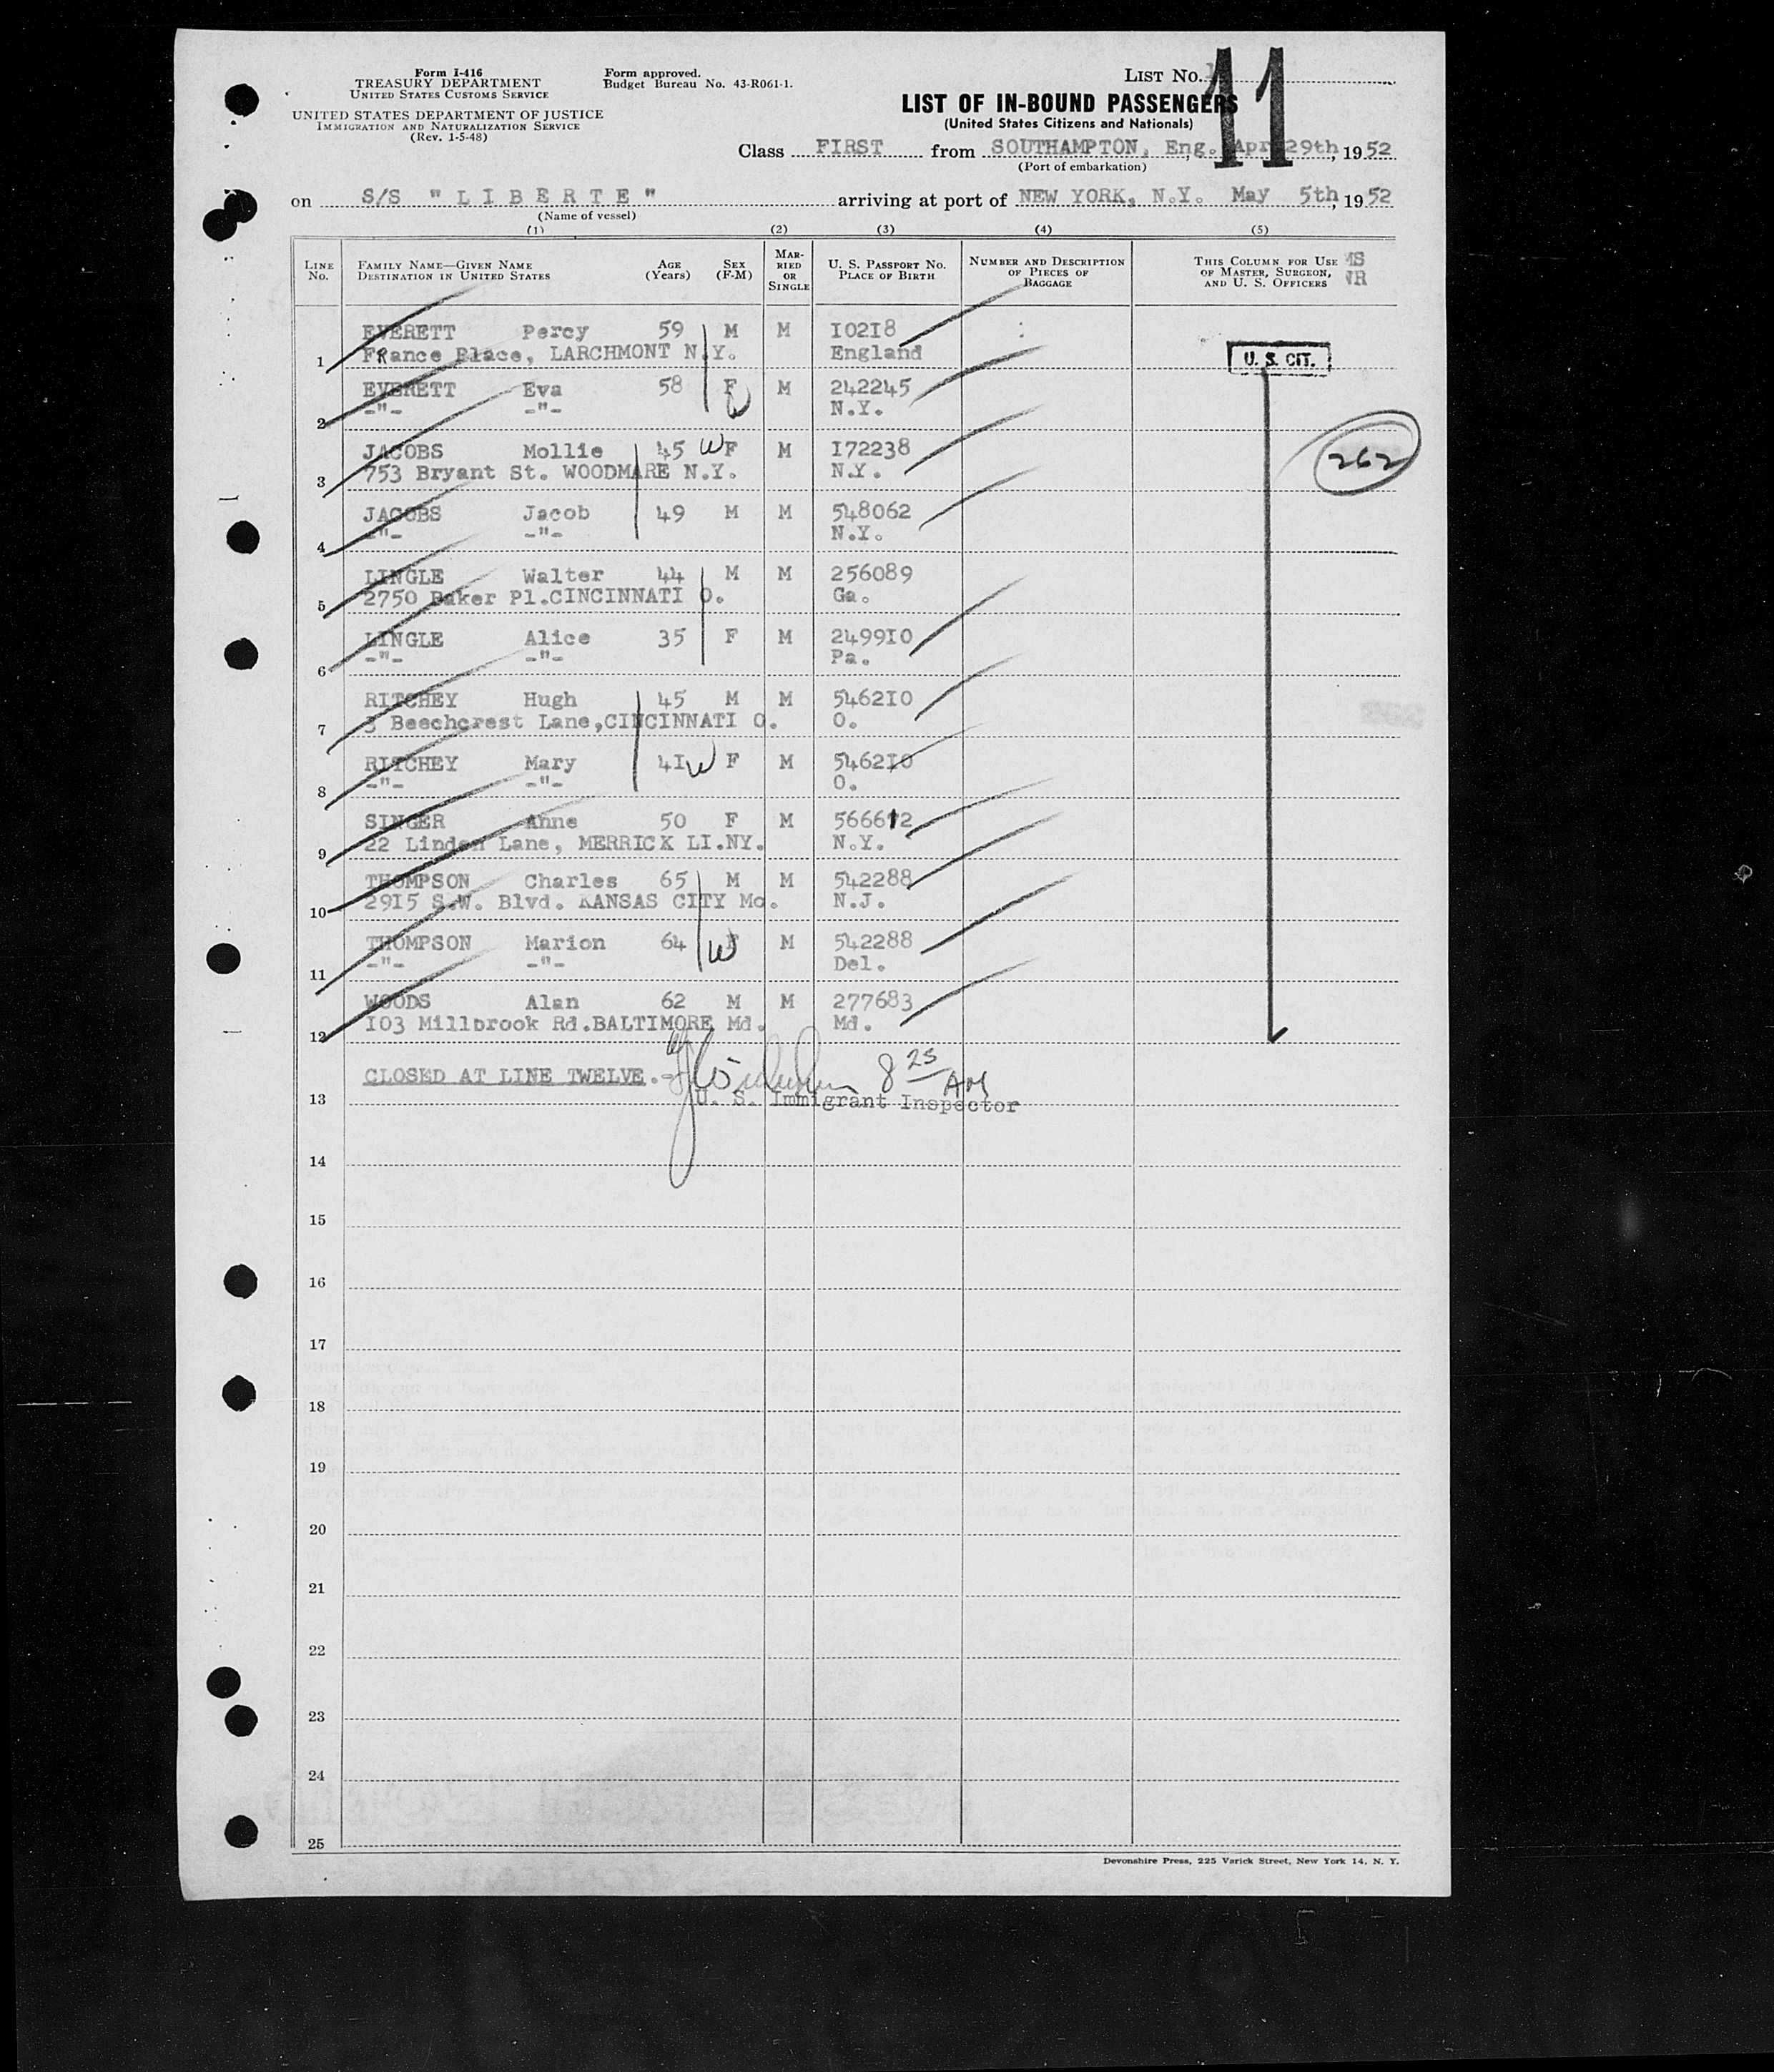 Form I-416
TREASURY DEPARTMENT
UNITED STATES CUSTOMS SERVICE
UNITED STATES DEPARTMENT OF JUSTICE
IMMIGRATION AND NATURALIZATION SERVICE
(Rev. 1-5-48)
Form approved.
Budget Bureau No. 43-R061-1.
LIST NO. 11
LIST OF IN-BOUND PASSENGERS
(United States Citizens and Nationals)
Class FIRST from SOUTHAMPTON, Eng. Apr 29th, 1952
(Port of embarkation)
on S/S "LIBERTE" arriving at port of NEW YORK, N.Y. May 5th, 1952
(Name of vessel)
(1) (2) (3) (4) (5)
LINE NO. FAMILY NAME—GIVEN NAME DESTINATION IN UNITED STATES AGE (Years) SEX (F-M) MARRIED OR SINGLE U. S. PASSPORT NO. PLACE OF BIRTH NUMBER AND DESCRIPTION OF PIECES OF BAGGAGE THIS COLUMN FOR USE OF MASTER, SURGEON, AND U. S. OFFICERS
EVERETT Percy 59 M M I02I8
1 FRance Place, LARCHMONT N.Y. England U. S. CIT.
EVERETT Eva 58 F M 242245
2 -"- -"- N.Y.
JACOBS Mollie 45 W F M I72238
3 753 Bryant St. WOODMARE N.Y. N.Y. 262
JACOBS Jacob 49 M M 548062
4 -"- -"- N.Y.
LINGLE Walter 44 M M 256089
5 2750 Baker Pl.CINCINNATI O. Ga.
LINGLE Alice 35 F M 2499I0
6 -"- -"- Pa.
RITCHEY Hugh 45 M M 5462I0
7 3 Beechcrest Lane,CINCINNATI O. O.
RITCHEY Mary 4I W F M 5462I0
8 -"- -"- O.
SINGER Anne 50 F M 566612
9 22 Linden Lane, MERRICK LI.NY. N.Y.
THOMPSON Charles 65 M M 542288
10 29I5 S.W. Blvd. KANSAS CITY Mo. N.J.
THOMPSON Marion 64 W F M 542288
11 -"- -"- Del.
WOODS Alan 62 M M 277683
12 I03 Millbrook Rd.BALTIMORE Md. Md.
CLOSED AT LINE TWELVE.- 8 25 AM
13 U. S. Immigrant Inspector
14
15
16
17
18
19
20
21
22
23
24
25
Devonshire Press, 225 Varick Street, New York 14, N. Y.